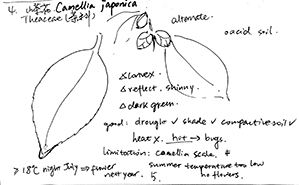 4. 山茶花 Camellia japonica
Theaceae (茶科)
alternate.
o acid soil.
△ convex
△ reflect. shinny.
△ dark green.
good: drought ✓ shade ✓ compactive soil ✓
heat x. hot → bugs.
limitation: camellia scale. #
≥ 18°C night July ⇒ flower next year.
5. summer temperature too low
no flowers.